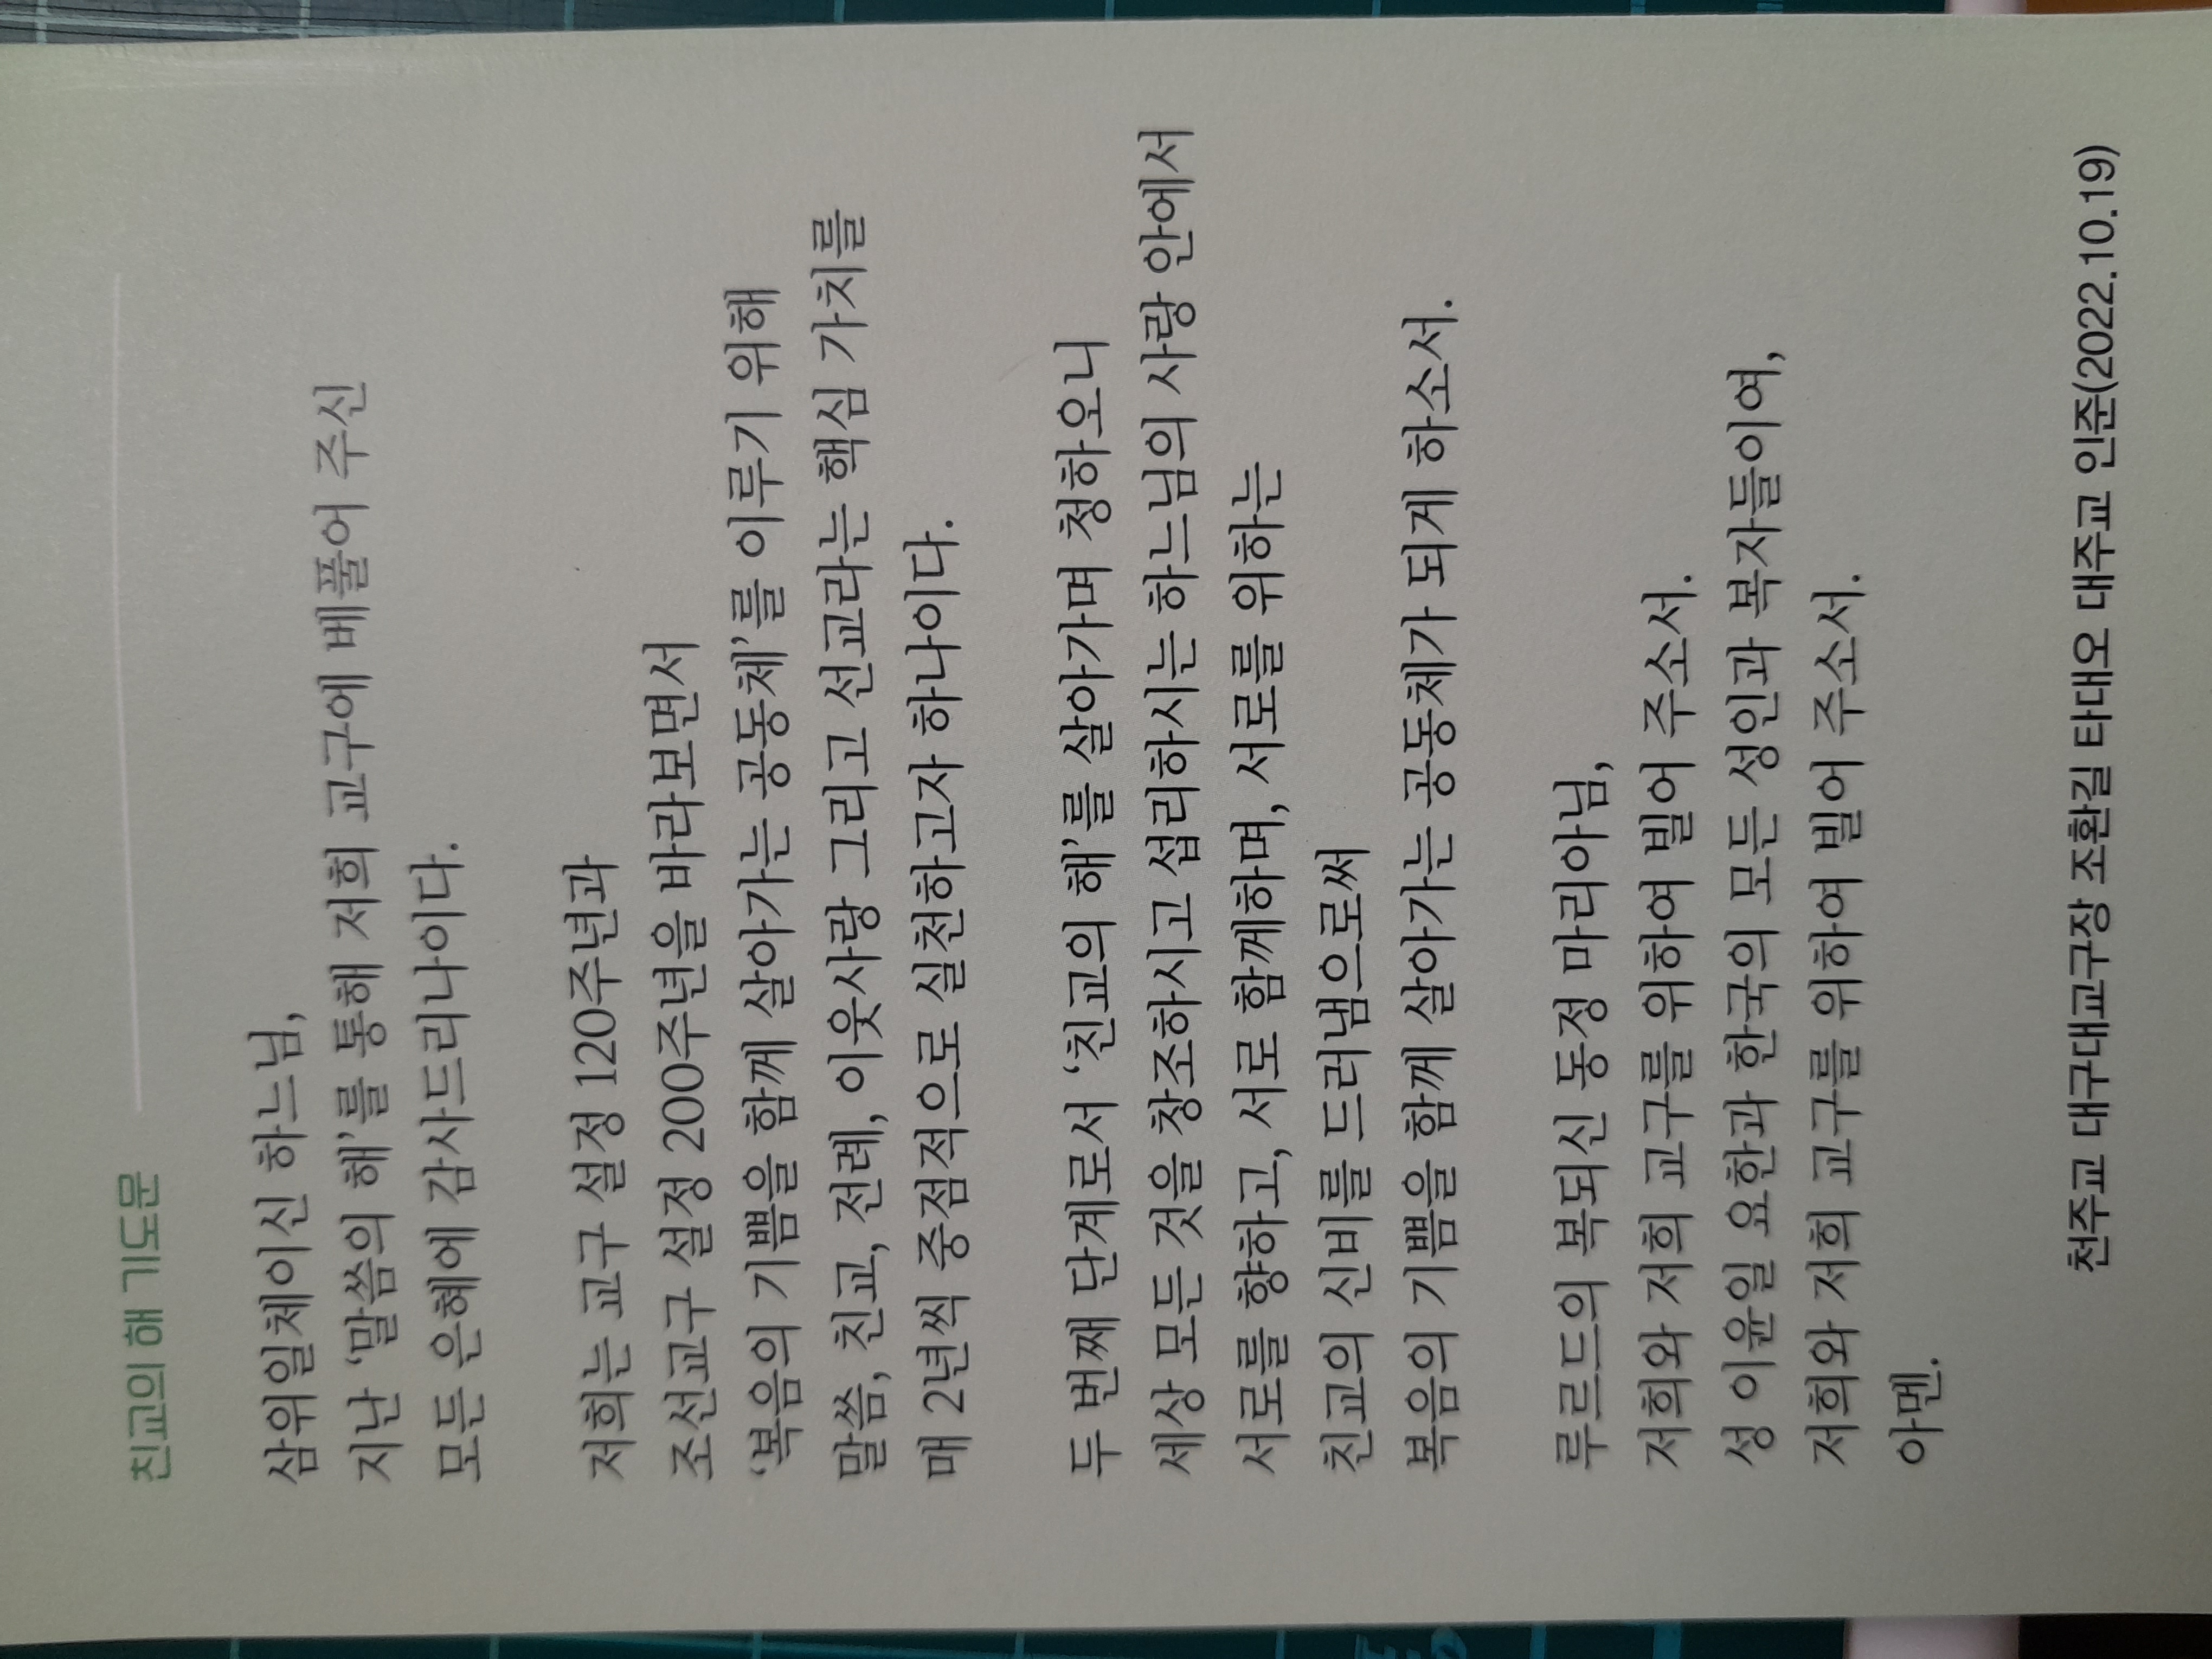 친교의 해 기도문
삼위일체이신 하느님,
지난 ‘말씀의 해’를 통해 저희 교구에 베풀어 주신
모든 은혜에 감사드리나이다.
저희는 교구 설정 120주년과
조선교구 설정 200주년을 바라보면서
‘복음의 기쁨을 함께 살아가는 공동체’를 이루기 위해
말씀, 친교, 전례, 이웃사랑 그리고 선교라는 핵심 가치를
매 2년씩 중점적으로 실천하고자 하나이다.
두 번째 단계로서 ‘친교의 해’를 살아가며 청하오니
세상 모든 것을 창조하시고 섭리하시는 하느님의 사랑 안에서
서로를 향하고, 서로 함께하며, 서로를 위하는
친교의 신비를 드러냄으로써
복음의 기쁨을 함께 살아가는 공동체가 되게 하소서.
루르드의 복되신 동정 마리아님,
저희와 저희 교구를 위하여 빌어 주소서.
성 이윤일 요한과 한국의 모든 성인과 복자들이여,
저희와 저희 교구를 위하여 빌어 주소서.
아멘.
천주교 대구대교구장 조환길 타대오 대주교 인준(2022.10.19)